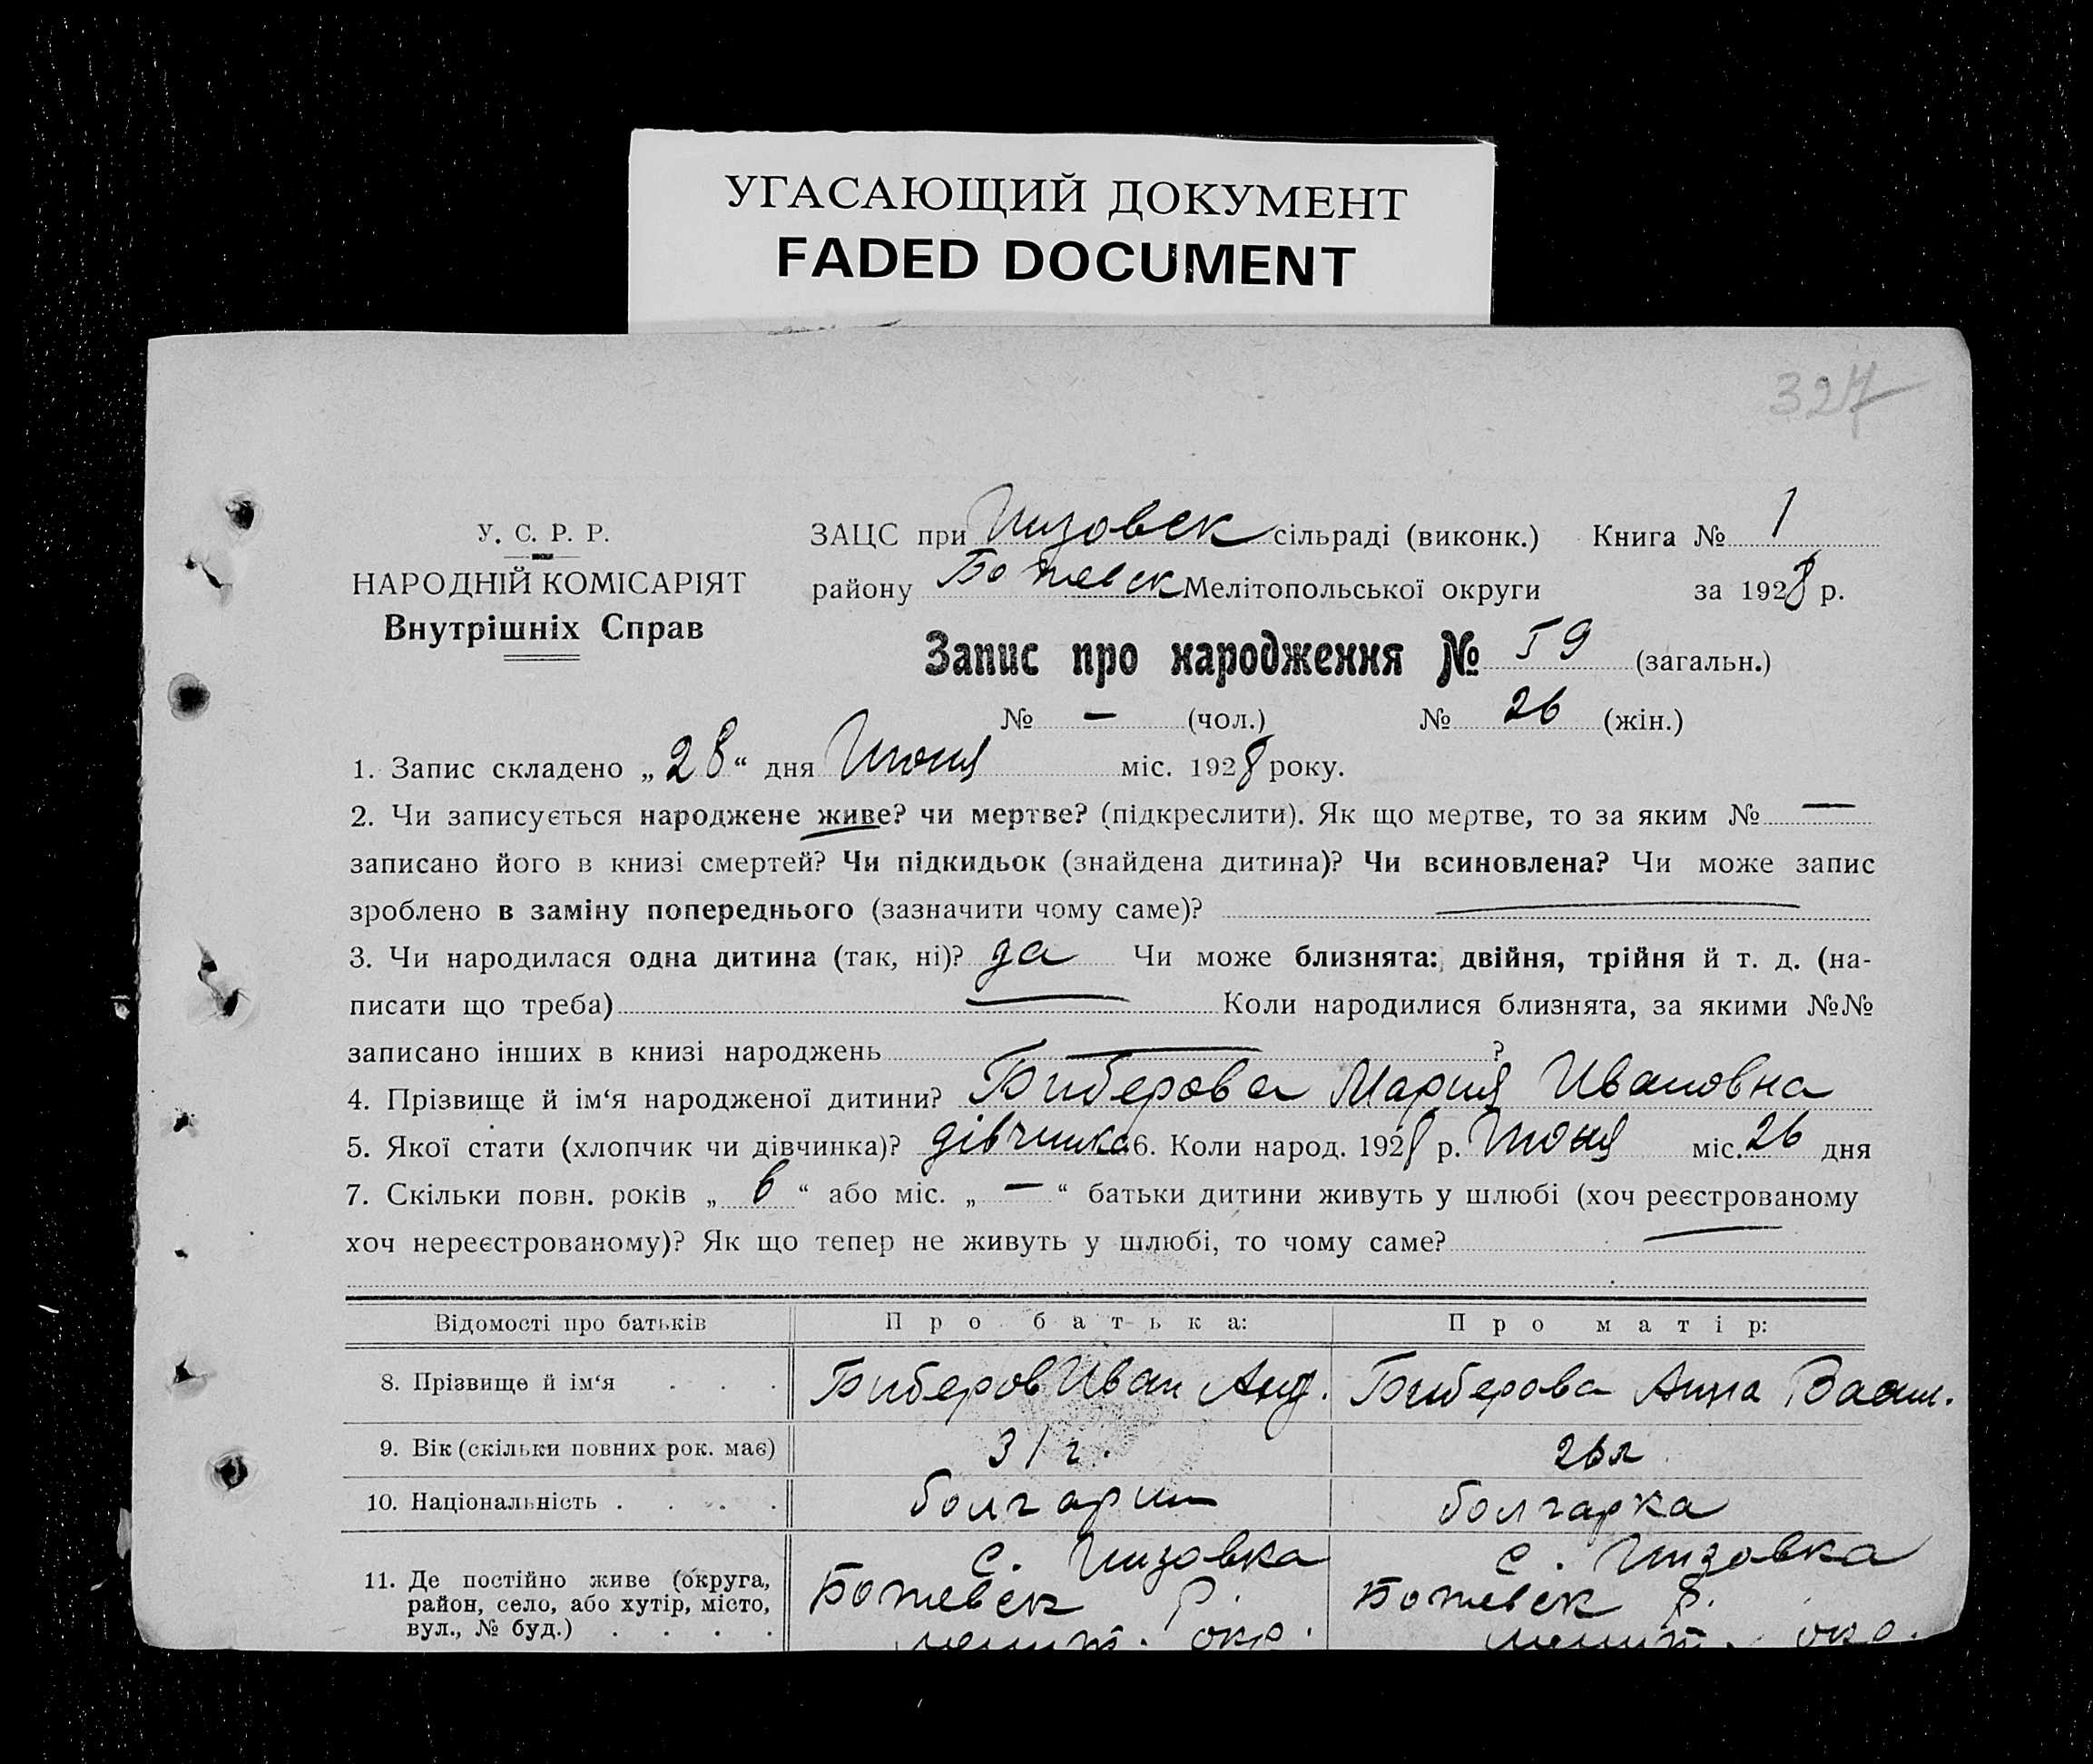 УГАСАЮЩИЙ ДОКУМЕНТ
FADED DOCUMENT
327
У. С. Р. Р.
НАРОДНІЙ КОМІСАРІЯТ
Внутрішніх Справ
ЗАЦС при Гизовск сільраді (виконк.) Книга № 1
району Ботиевск Мелітопольської округи за 1928 р.
Запис про народження № 59 (загальн.)
№ — (чол.) № 26 (жін.)
1. Запис складено „28“ дня Июня міс. 1928 року.
2. Чи записується народжене живе? чи мертве? (підкреслити). Як що мертве, то за яким № —
записано його в книзі смертей? Чи підкидьок (знайдена дитина)? Чи всиновлена? Чи може запис
зроблено в заміну попереднього (зазначити чому саме)? —
3. Чи народилася одна дитина (так, ні)? да Чи може близнята: двійня, трійня й т. д. (на-
писати що треба) — Коли народилися близнята, за якими №№
записано інших в книзі народжень — ?
4. Прізвище й ім‘я народженої дитини? Биберова Мария Ивановна
5. Якої стати (хлопчик чи дівчинка)? дівчинка 6. Коли народ. 1928 р. Июня міс. 26 дня
7. Скільки повн. років „ 6 “ або міс. „ — “ батьки дитини живуть у шлюбі (хоч реєстрованому
хоч нереєстрованому)? Як що тепер не живуть у шлюбі, то чому саме? —
Відомості про батьків Про батька: Про матір:
8. Прізвище й ім‘я . . . Биберов Иван Анд. Биберова Анна Васил.
9. Вік (скільки повних рок. має) 31 г. 26 л
10. Національність . . . . болгарин болгарка
11. Де постійно живе (округа,
район, село, або хутір, місто,
вул., № буд.) . . . .
с. Гизовка
Ботиевск р.
мелит. окр.
с. Гизовка
Ботиевск р.
мелит. окр.